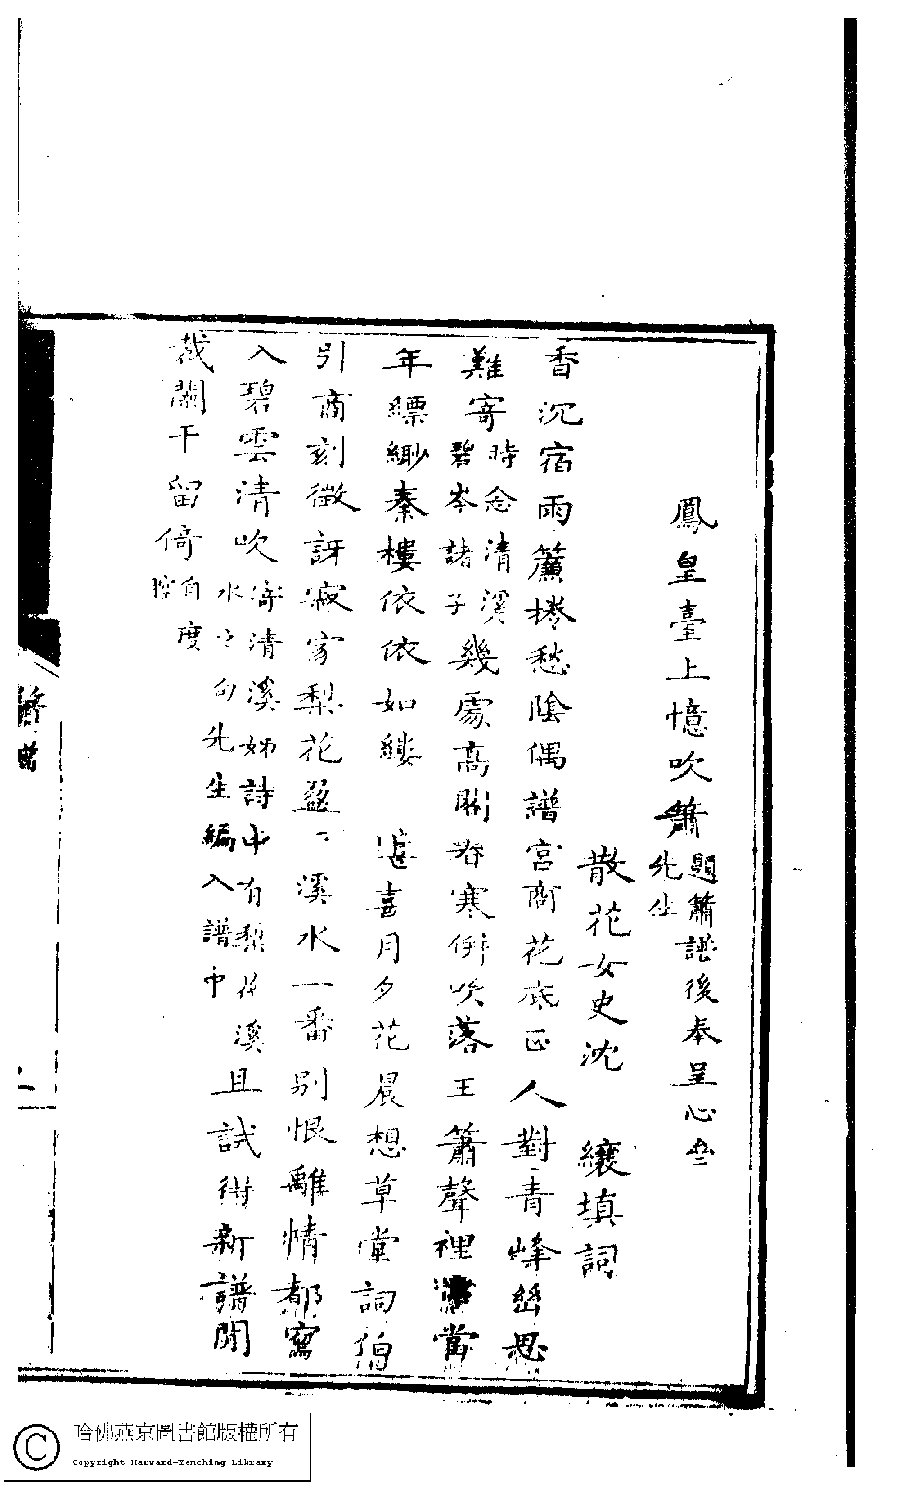 鳳皇臺上憶吹簫 題簫譜後奉呈心盦
先生
散花女史沈 纕填詞
香沉宿雨簾捲愁陰偶譜宮商花底正人對青峰幽思
難寄 時念清溪
碧岑諸子 幾處高關春寒倂吹落玉簫聲裡 當
年縹緲秦樓依依如縷 喜月夕花晨想草堂詞伯
引商刻徵訝寂寥梨花盈〻溪水一番別恨離情都寫
入碧雲清吹 寄清溪姊詩中有梨花溪
水之句先生編入譜中 且試衍新譜閒
裁闌干留倚 自度
腔
譜
哈佛燕京圖書館版權所有
Copyright Harvard-Yenching Library